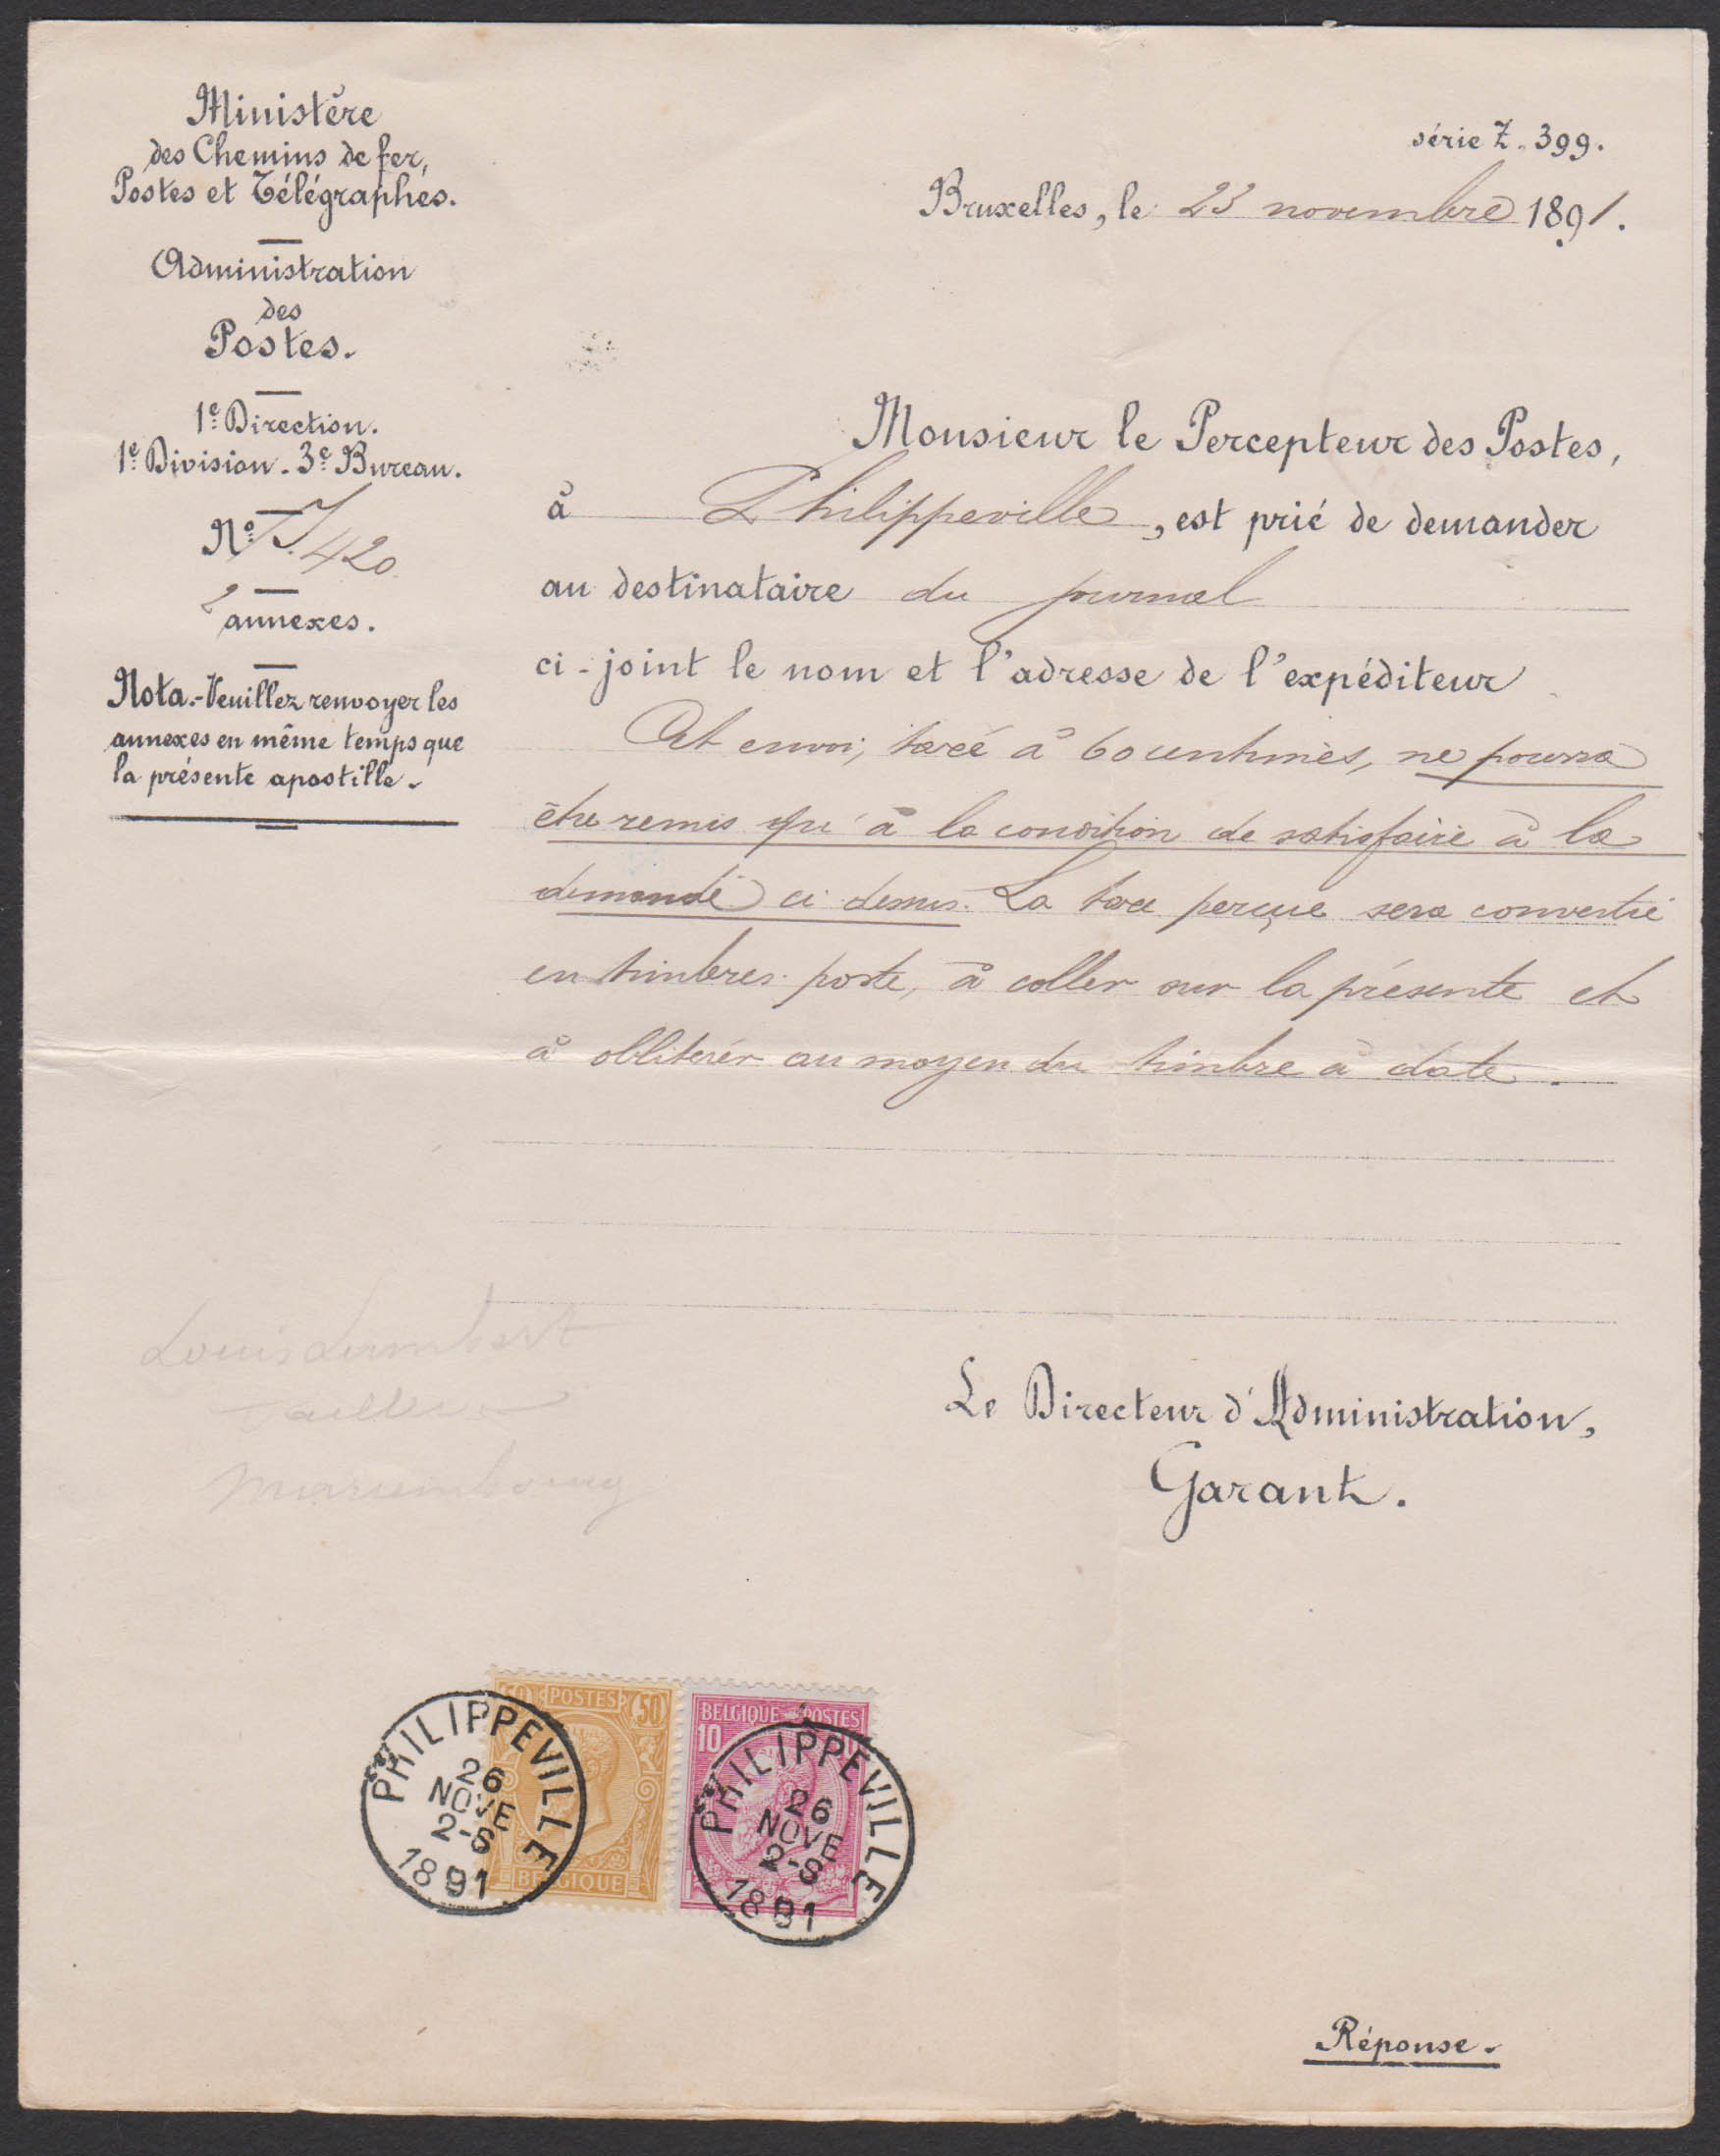 Ministère
des Chemins de fer,
Postes et Télégraphes.
Administration
des
Postes.
1e Direction.
1e Division. 3e Bureau.
No J. 420.
2 annexes.
Nota.- Veuillez renvoyer les
annexes en même temps que
la présente apostille.
série Z. 399.
Bruxelles, le 23 novembre 1891.
Monsieur le Percepteur des Postes,
à Philippeville, est prié de demander
au destinataire du journal
ci-joint le nom et l'adresse de l'expéditeur
Cet envoi, taxé à 60 centimes, ne pourra
être remis qu'à la condition de satisfaire à la
demande ci dessus. La taxe perçue sera convertie
en timbres-poste, à coller sur la présente et
à oblitérer au moyen du timbre à date.
Louis Lambert
Tailleur
Mariembourg
Le Directeur d'Administration,
Garant.
50 POSTES 50
BELGIQUE
PHILIPPEVILLE
26
NOVE
2-S
1891
BELGIQUE POSTES
10
PHILIPPEVILLE
26
NOVE
2-S
1891
Réponse.